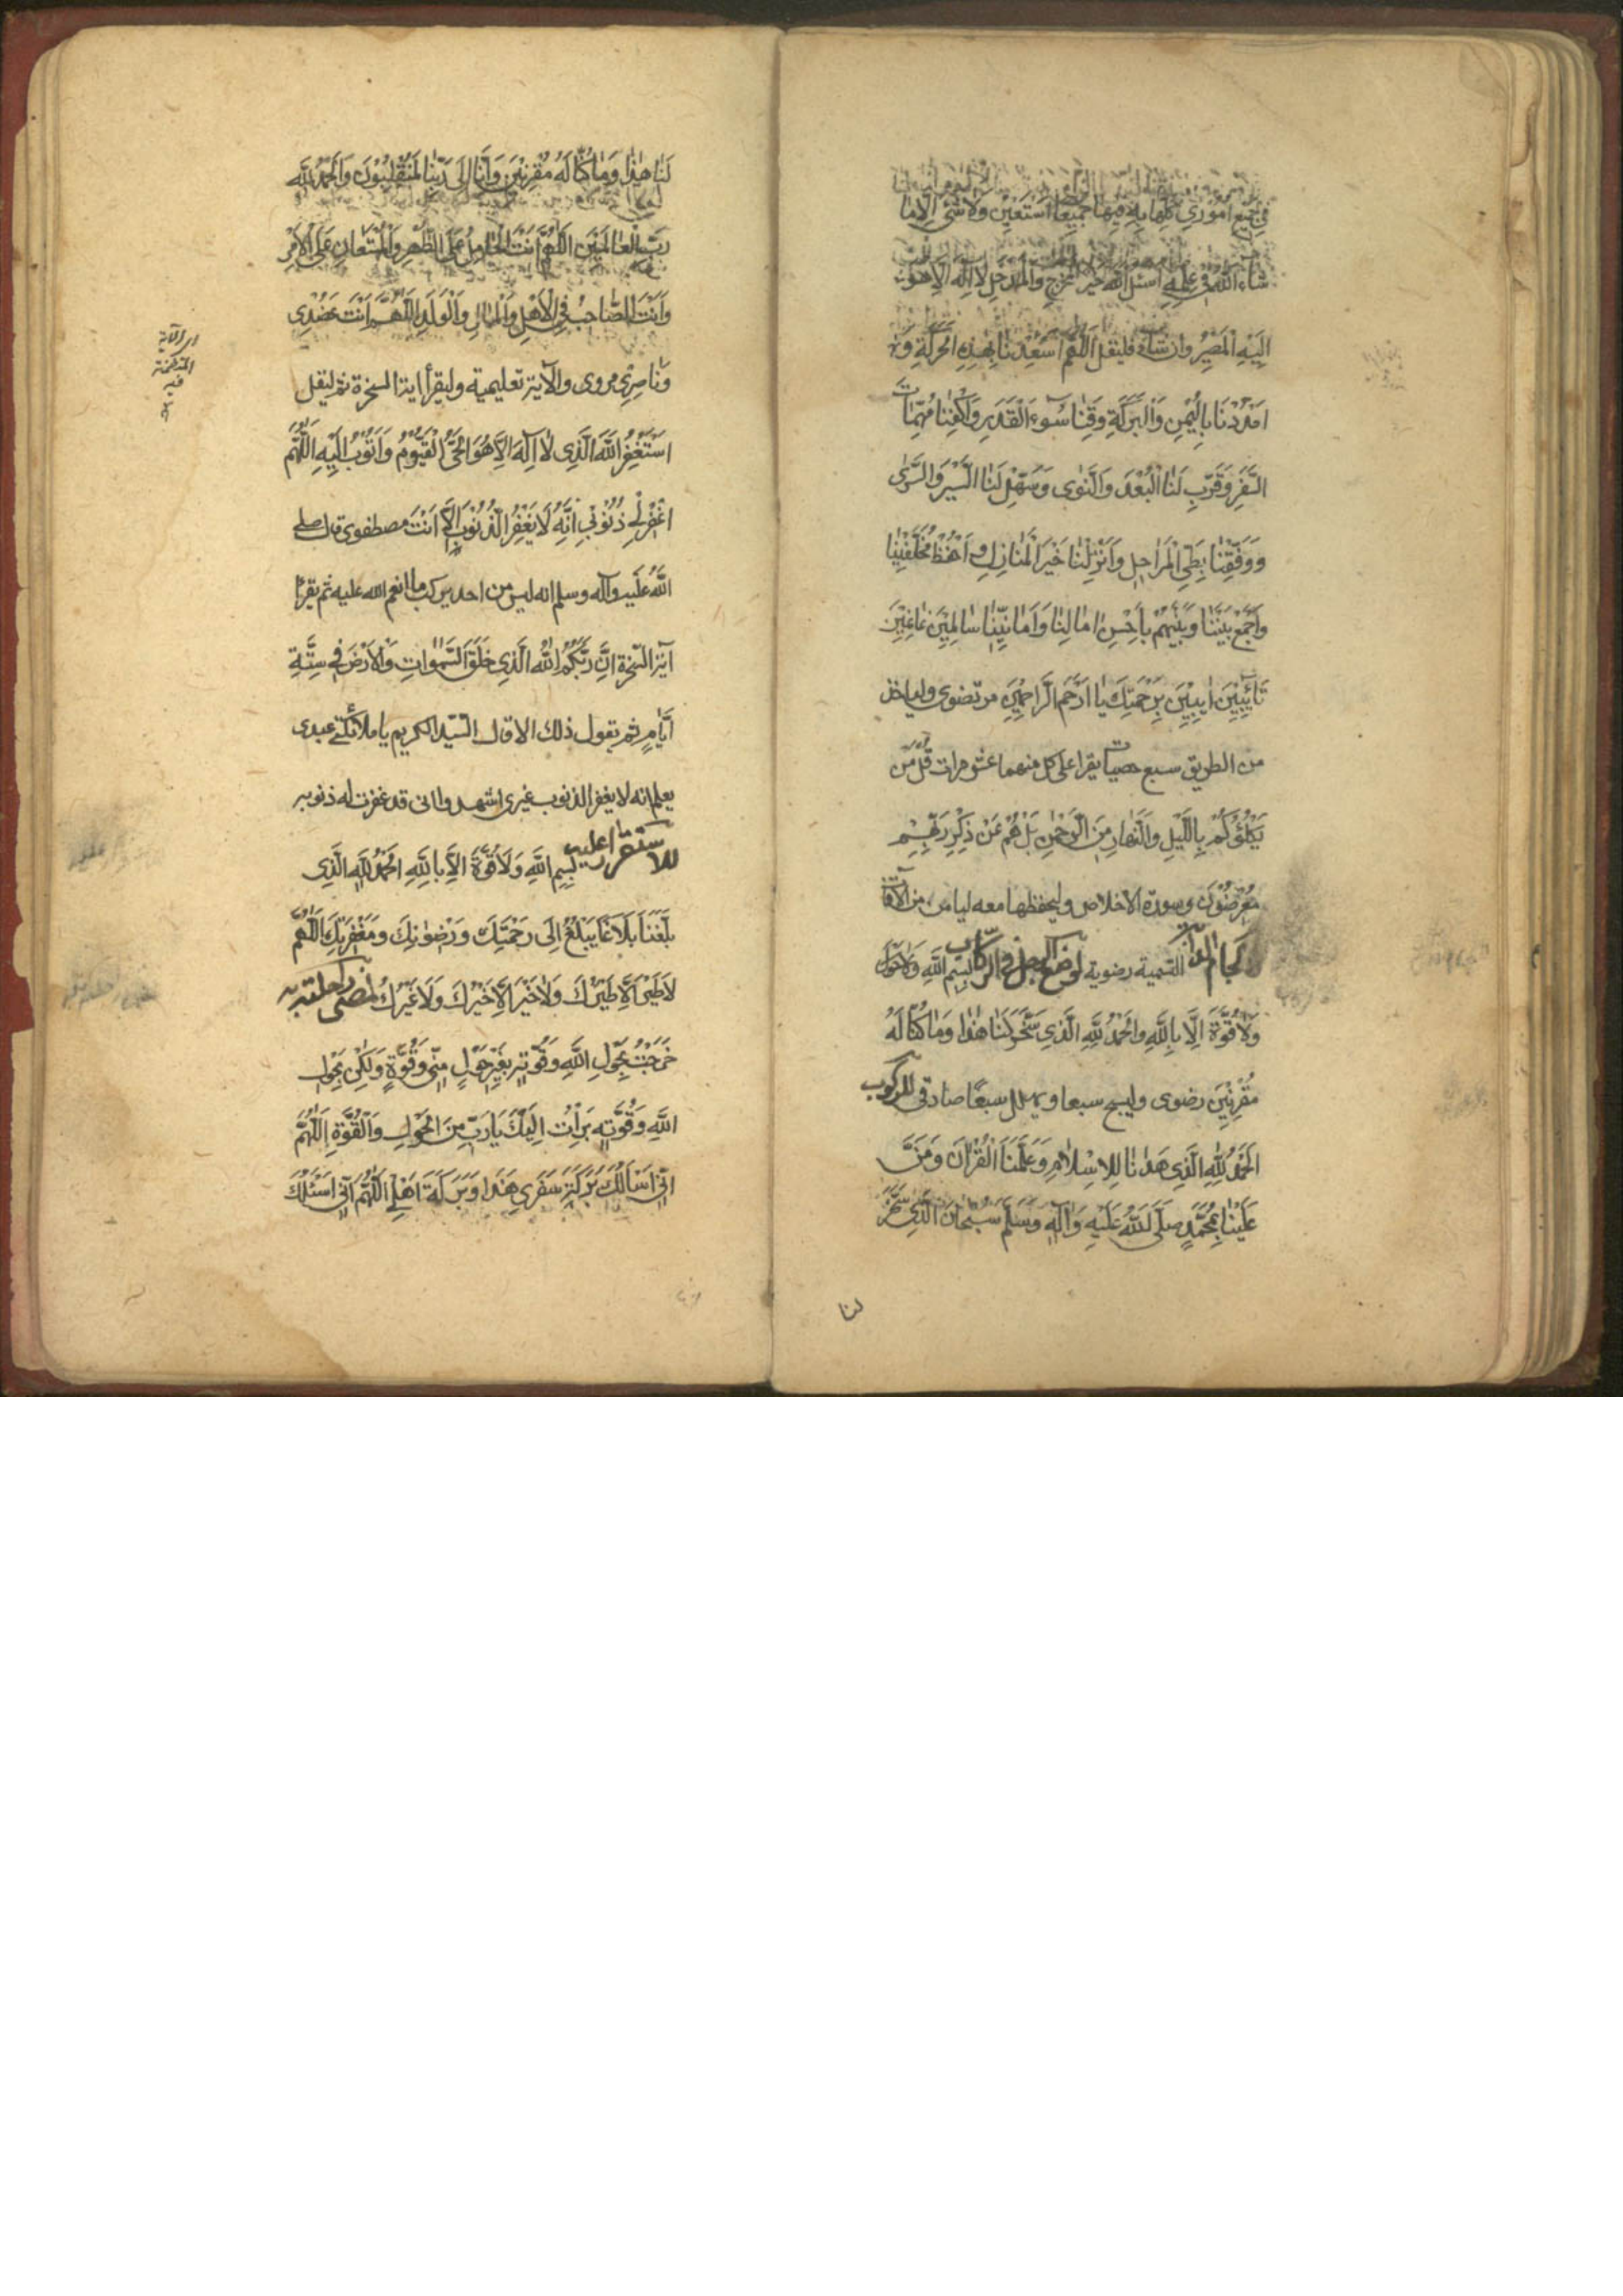 في جميع اموري كلها بِهِ فيها جَمِيعًا اَسْتَعِينُ ولا شَيْءَ اِلّا مَا
شَاءَ اللهُ في عِلْمِهِ اسئل الله خير المَخْرَجِ والمَدْخَلِ لا اله الا هُوَ
اِلَيْهِ الْمَصِيرُ وان شاء فليقل اَللّهُمَّ اَسْعِدْنَا بِهذِهِ الحَرَكَةِ وَ
امْدُدْنَا بِالْيُمْنِ وَالْبَرَكَةِ وَقِنَا سُوءَ الْقَدَرِ وَاكْفِنَا مُهِمَّاتِ
السَّفَرِ وَقَرِّبْ لَنَا الْبُعْدَ وَالنَّوى وَسَهِّلْ لَنَا السَّيْرَ وَالسُّرى
وَوَفِّقْنَا بِطَيِّ الْمَرَاحِلِ وَاَنْزِلْنَا خَيْرَ الْمَنَازِلِ وَاحْفَظْ مُخَلَّفِينَا
وَاجْمَعْ بَيْنَنَا وَبَيْنَهُمْ بِاَحْسَنِ امَالِنَا وَاَمَانِيِّنَا سَالِمِينَ غَانِمِينَ
تَائِبِينَ ايِبِينَ بِرَحْمَتِكَ يَا اَرْحَمَ الرَّاحِمِينَ مرتضوى ولياخذ
من الطريق سبع حصيات يقرا على كل منهما عشر مرات قُلْ مَنْ
يَكْلَؤُكُمْ بِاللَّيْلِ وَالنَّهَارِ مِنَ الرَّحْمنِ بَلْ هُمْ عَنْ ذِكْرِ رَبِّهِمْ
مُعْرِضُونَ وسورة الاخلاص وليحفظها معه ليامن من الآفات
لالجام الدابّة التسمية رضوية لوضع الرجل في الركاب بِسْمِ اللَّهِ وَلَا حَوْلَ
وَلَا قُوَّةَ اِلَّا بِاللَّهِ وَالْحَمْدُ لِلَّهِ الَّذِي سَخَّرَ لَنَا هذَا وَمَا كُنَّا لَهُ
مُقْرِنِينَ رضوى وليسبح سبعا ويهلل سبعًا صادقى للركوب
الْحَمْدُ لِلَّهِ الَّذِي هَدَانَا لِلْاِسْلَامِ وَعَلَّمَنَا الْقُرْانَ وَمَنَّ
عَلَيْنَا بِمُحَمَّدٍ صَلَّى اللَّهُ عَلَيْهِ وَالِهِ وَسَلَّمَ سُبْحَانَ الَّذِي سَخَّرَ
لنا
لَنَا هذَا وَمَا كُنَّا لَهُ مُقْرِنِينَ وَاِنَّا اِلَى رَبِّنَا لَمُنْقَلِبُونَ وَالْحَمْدُ لِلَّهِ
رَبِّ الْعَالَمِينَ اَللّهُمَّ اَنْتَ الْحَامِلُ عَلَى الظَّهْرِ وَالْمُسْتَعَانُ عَلَى الْاَمْرِ
وَاَنْتَ الصَّاحِبُ فِي الْاَهْلِ وَالْمَالِ وَالْوَلَدِ اَللّهُمَّ اَنْتَ عَضُدِي
وَنَاصِرِي مروى والآية تعليمية وليقرأ اية السخرة ثم ليقل
اَسْتَغْفِرُ اللَّهَ الَّذِي لَا اِلهَ اِلَّا هُوَ الْحَيُّ الْقَيُّومُ وَاَتُوبُ اِلَيْهِ اَللّهُمَّ
اغْفِرْ لِي ذُنُوبِي اِنَّهُ لَا يَغْفِرُ الذُّنُوبَ اِلَّا اَنْتَ مصطفوى قال صلى
اللَّهُ عَلَيهِ وآله وسلم انه ليس من احد يركب ما انعم الله عليه ثم يقرأ
آية السخرة اِنَّ رَبَّكُمُ اللَّهُ الَّذِي خَلَقَ السَّموَاتِ وَالْاَرْضَ فِي سِتَّةِ
اَيَّامٍ ثم يقول ذلك الا قال السّيد الكريم يا ملائكتي عبدى
يعلم انه لا يغفر الذنوب غيرى اشهدوا انى قد غفرت له ذنوبه
للاستقرار عليه بِسْمِ اللَّهِ وَلَا قُوَّةَ اِلَّا بِاللَّهِ الْحَمْدُ لِلَّهِ الَّذِي
بَلَّغَنَا بَلَاغًا يَبْلُغُ اِلَى رَحْمَتِكَ وَرِضْوَانِكَ وَمَغْفِرَتِكَ اَللّهُمَّ
لَا طَيْرَ اِلَّا طَيْرُكَ وَلَا خَيْرَ اِلَّا خَيْرُكَ وَلَا غَيْرُكَ
خَرَجْتُ بِحَوْلِ اللَّهِ وَقُوَّتِهِ بِغَيْرِ حَوْلٍ مِنِّي وَقُوَّةٍ وَلكِنْ بِحَوْلِ
اللَّهِ وَقُوَّتِهِ بَرِئْتُ اِلَيْكَ يَا رَبِّ مِنَ الْحَوْلِ وَالْقُوَّةِ اَللّهُمَّ
اِنِّي اَسْاَلُكَ بَرَكَةَ سَفَرِي هَذَا وَبَرَكَةَ اَهْلِهِ اَللّهُمَّ اِنِّي اَسْئَلُكَ